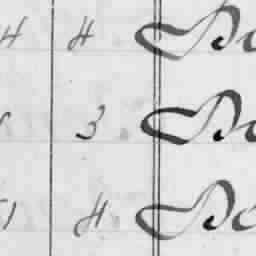 4 4 Do
3 Do
1 4 Do